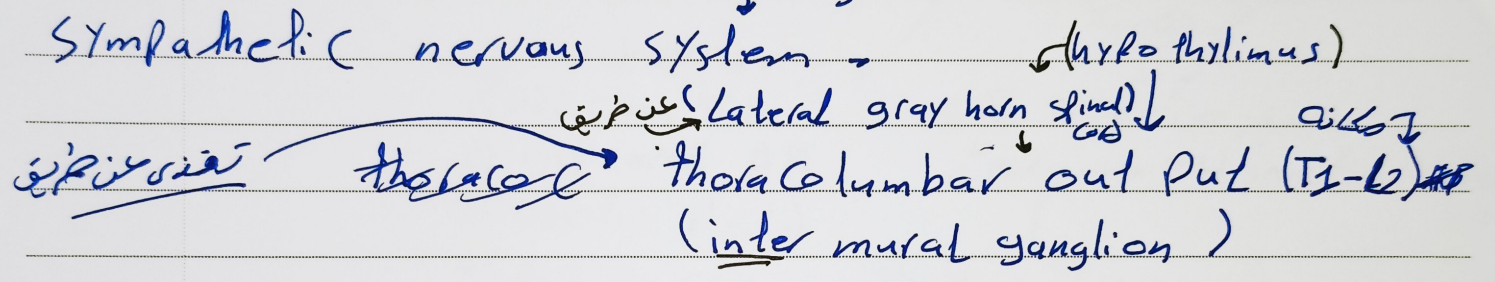 Sympathetic nervous system - (hypothylimus)
عن طريق (Lateral gray horn spinal)
تغذى عن طريق thoracolumbar out put (T1-L2) مكانه
(inter mural ganglion)